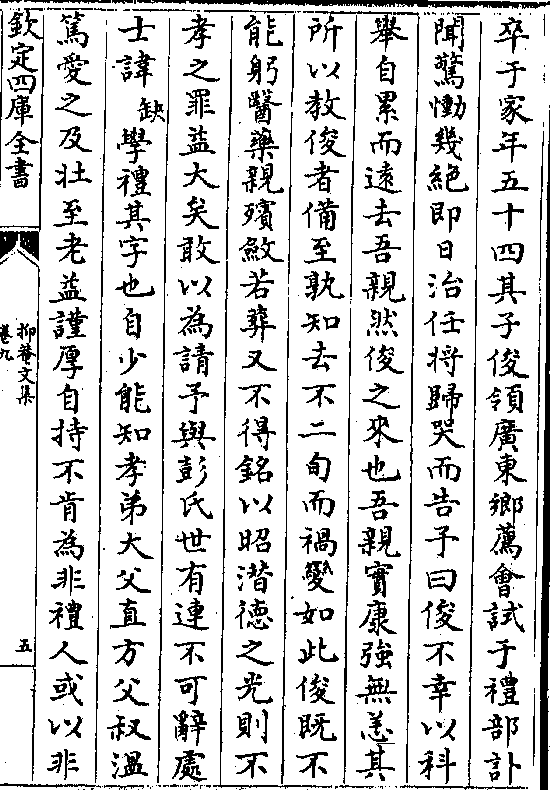 卒于家年五十四其子俊領廣東鄉薦會試于禮部訃
聞驚慟幾絕即日治任将歸哭而告予曰俊不幸以科
舉自累而遠去吾親然俊之來也吾親實康強無恙其
所以教俊者備至孰知去不二旬而禍變如此俊既不
能躬醫藥親殯斂若葬又不得銘以昭潛德之光則不
孝之罪益大矣敢以為請予與彭氏世有連不可辭處
士諱缺學禮其字也自少能知孝弟大父直方父叔溫
篤愛之及壮至老益謹厚自持不肯為非禮人或以非
欽定四庫全書
抑菴文集
卷九
五